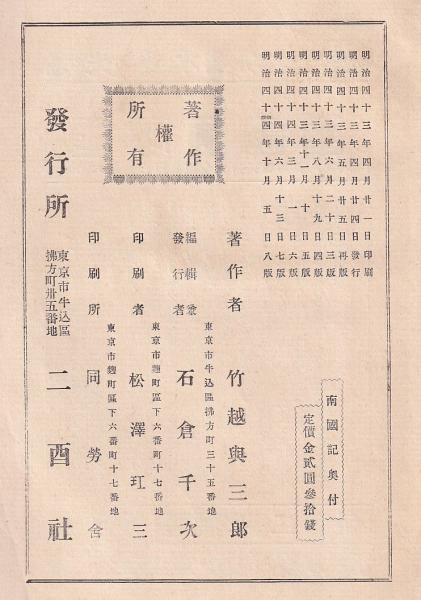 明治四十三年四月廿一日印刷
明治四十三年四月廿四日發行
明治四十三年五月廿五日再版
明治四十三年六月二十日三版
明治四十三年八月十九日四版
明治四十三年十一月十日五版
明治四十四年三月一日六版
明治四十四年六月十三日七版
明治四十四年十月五日八版
南國記奥付
定價金貳圓參拾錢
著作
權
所有
著作者 竹越與三郎
東京市牛込區拂方町三十五番地
編輯兼
發行者 石倉千次
東京市麹町區下六番町十七番地
印刷者 松澤玒三
東京市麹町區下六番町十七番地
印刷所 同勞舍
發行所
東京市牛込區
拂方町卅五番地
二酉社